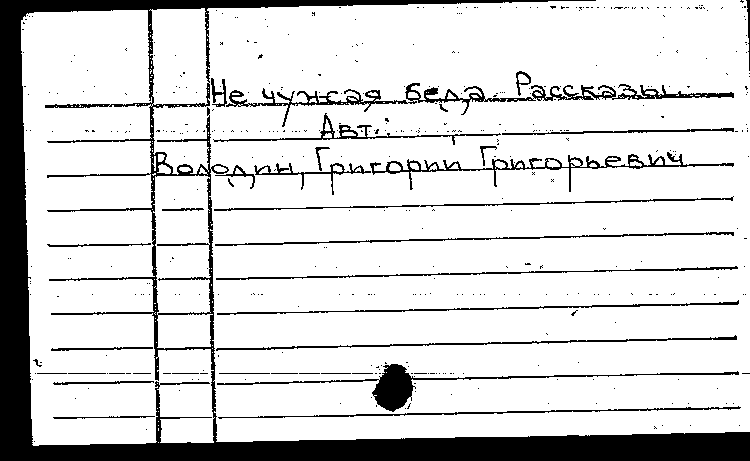 Не чужая беда. Рассказы.
Авт.:
Володин, Григорий Григорьевич